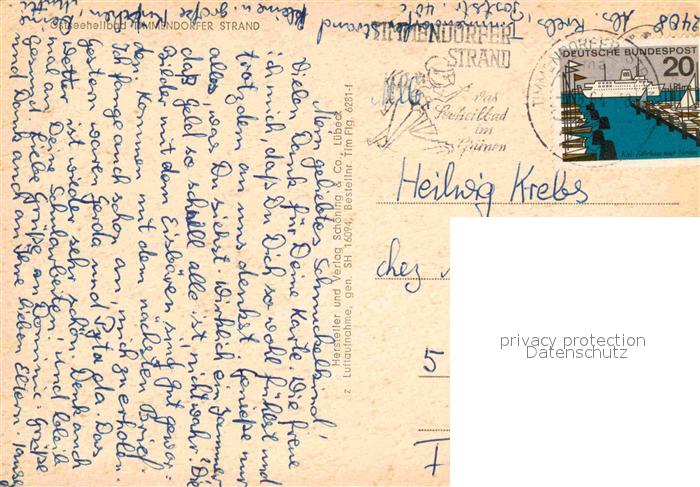 Ostseeheilbad TIMMENDORFER STRAND
Mein geliebtes Schnuckelhund!
Vielen Dank für Deine Karte. Wie freue
ich mich, daß Du Dich so wohl fühlst und
trotzdem an uns denkst. Genieße nur
alles, was Du siehst. Wirklich ein Jammer
daß Geld so schnell alle ist, nicht wahr? Die
Bilder mit dem Eisbären sind gut gewor-
den. Kommen mit dem nächsten Brief.
Ich fange auch schon an, mich zu erholen.
Gestern waren Gerda und da. Das
Wetter ist wieder sehr schön. Denk auch
mal an Deine Schularbeiten und bleib
gesund. Liebe Grüße an Dominic. Grüße
und Dank auch an seine lieben Eltern
Hersteller und Verlag Schöning & Co., Lübeck
z Luftaufnahme, gen. SH 16094, Bestellnr. Tim Flg. 6281-f
2408 Timmendorferstrand
Krebs,
Poststr. 40
TIMMENDORFER
STRAND
das
Seeheilbad
im
Grünen
DEUTSCHE BUNDESPOST
20
Heilwig Krebs
chez
5
F
privacy protection
Datenschutz